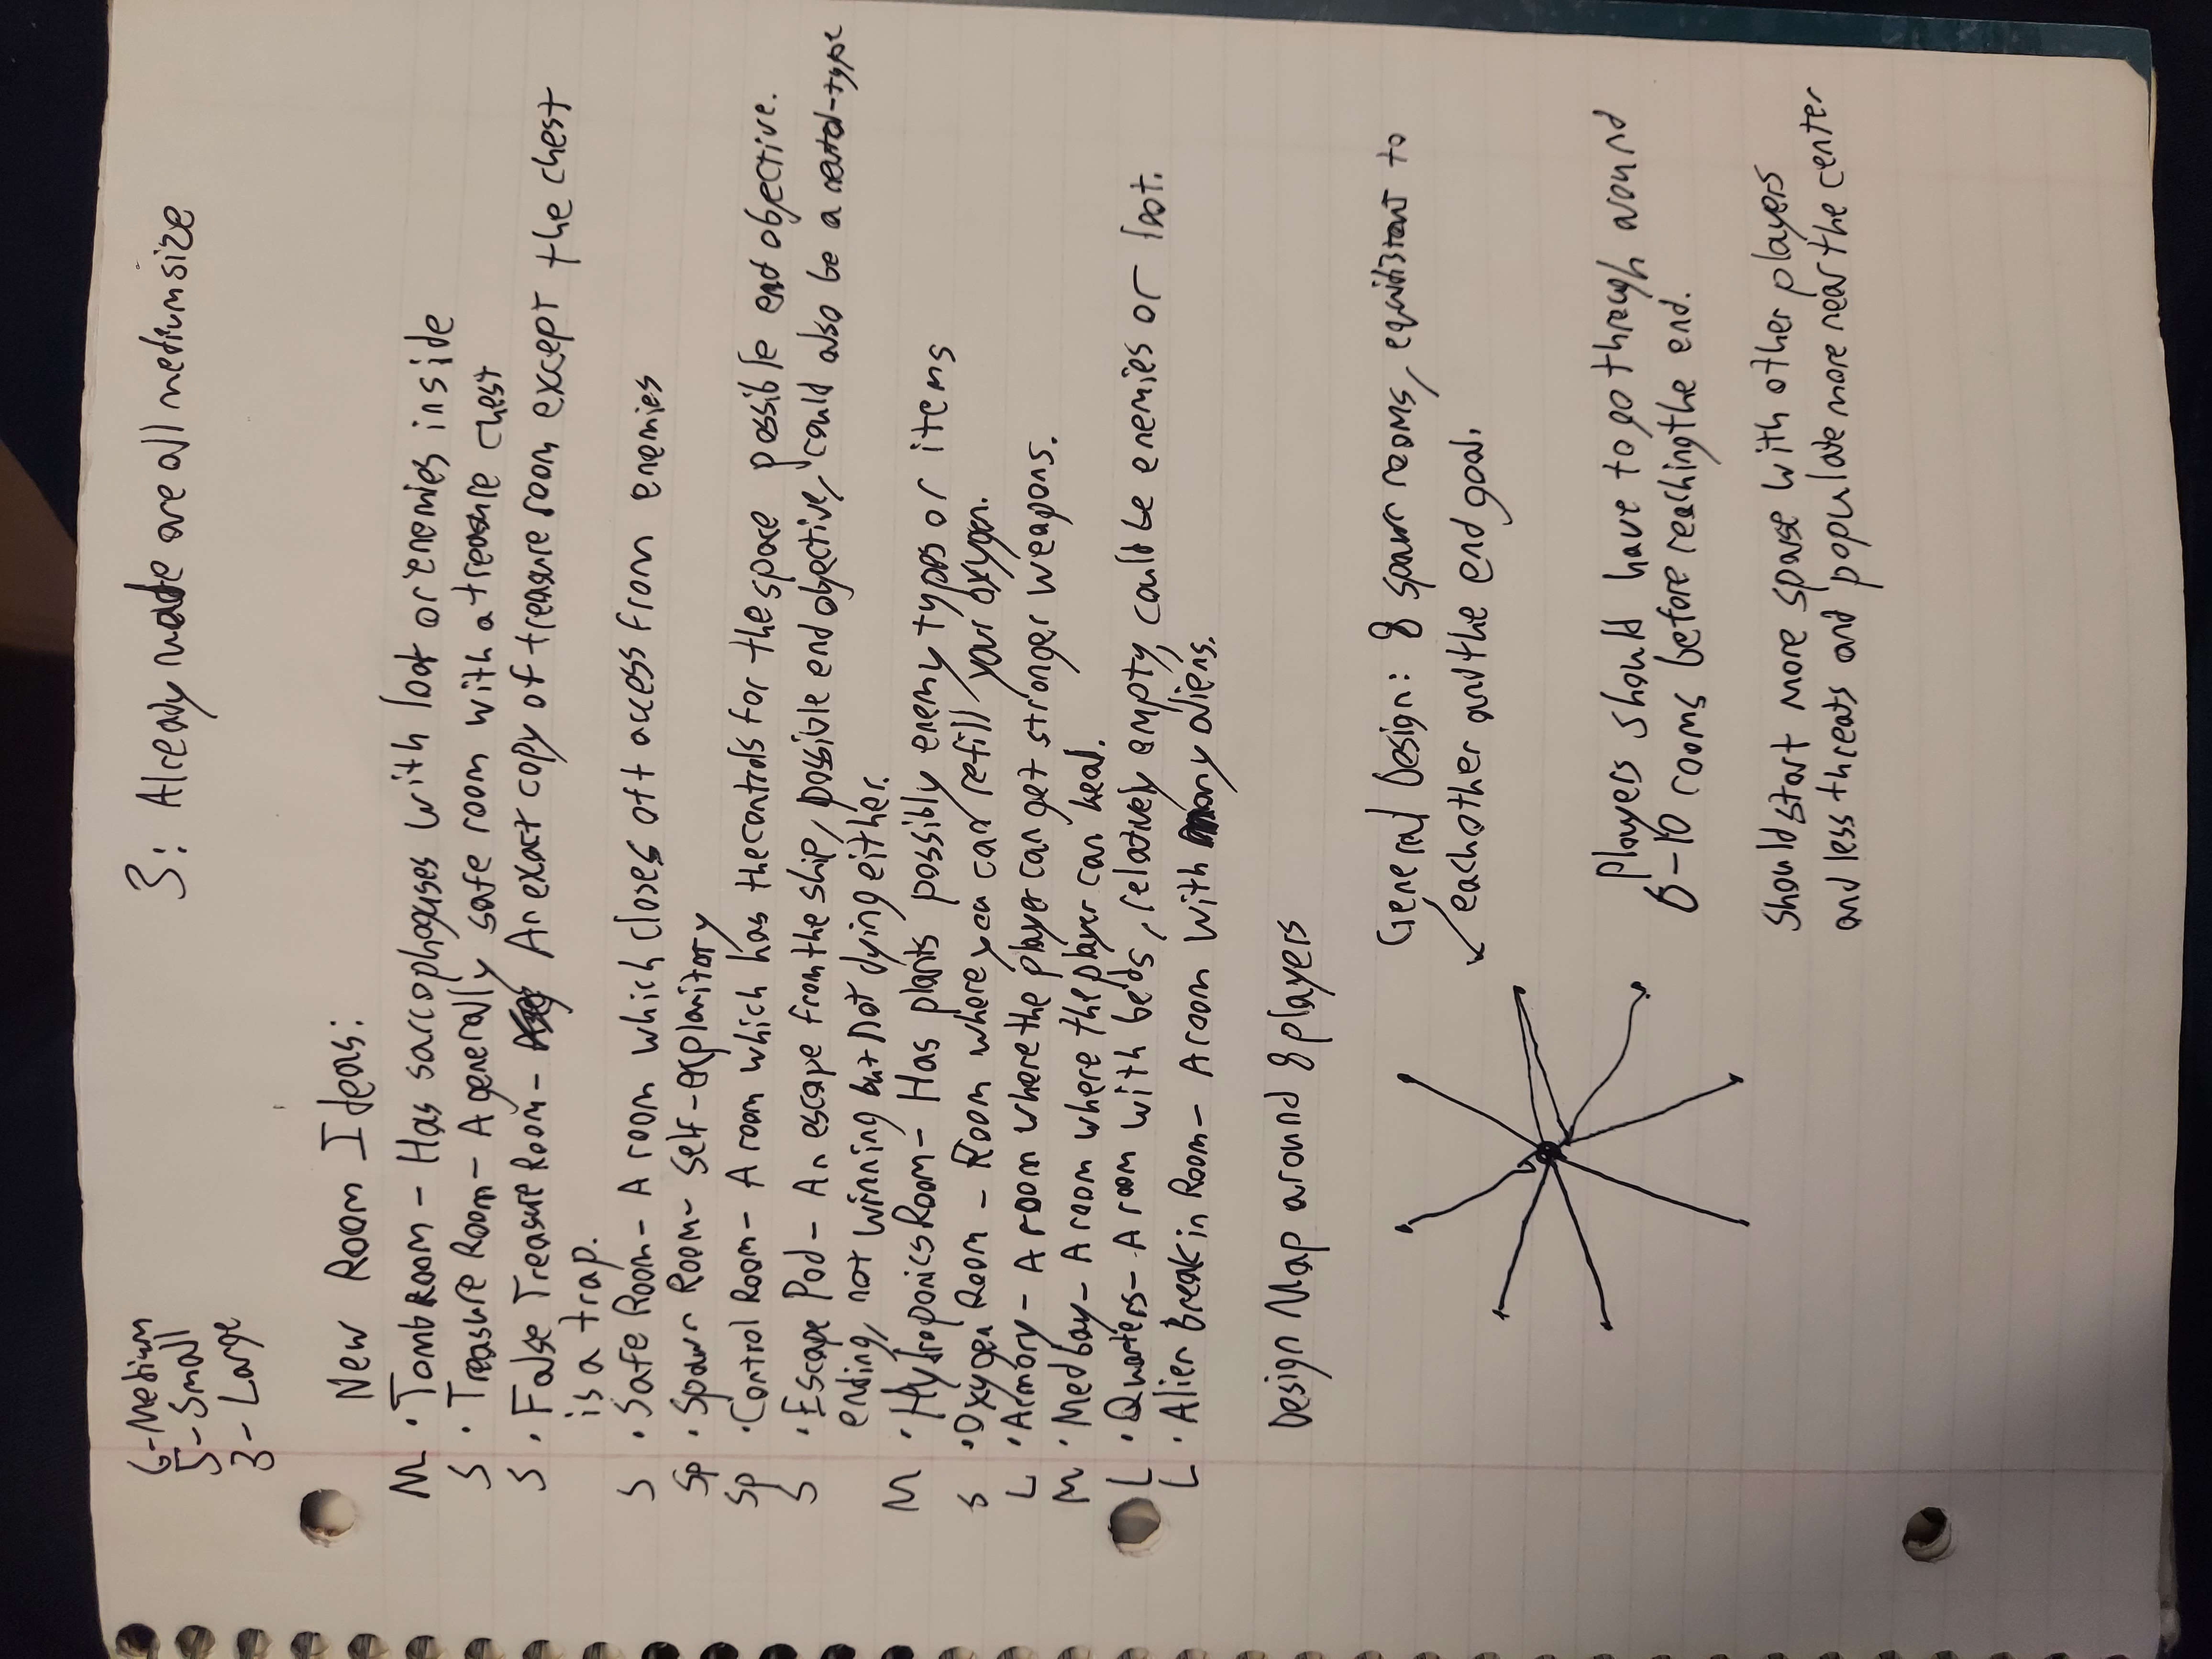 6-Medium
5-Small
3-Large
3: Already made are all medium size
New Room Ideas:
M • Tomb Room - Has sarcophoguses with loot or enemies inside
S • Treasure Room - A generally safe room with a treasure chest
S • False Treasure Room - An exact copy of treasure room except the chest
is a trap.
S • Safe Room - A room which closes off access from enemies
Sp • Spawn Room - Self-explanitory
Sp • Control Room - A room which has the controls for the space possible end objective.
S • Escape Pod - An escape from the ship, possible end objective, could also be a neutal-type
ending, not winning but not dying either.
M • Hydroponics Room - Has plants possibly enemy types or items
S • Oxygen Room - Room where you can refill your oxygen.
L • Armory - A room where the player can get stronger weapons.
M • Medbay - A room where the player can heal.
L • Quarters - A room with beds, relatively empty, could be enemies or loot.
L • Alien Break in Room - A room with many aliens.
Design Map around 8 players
General Design: 8 spawn rooms, equidistant to
each other and the end goal.
Players should have to go through around
6-10 rooms before reaching the end.
Should start more sparse with other players
and less threats and populate more near the center